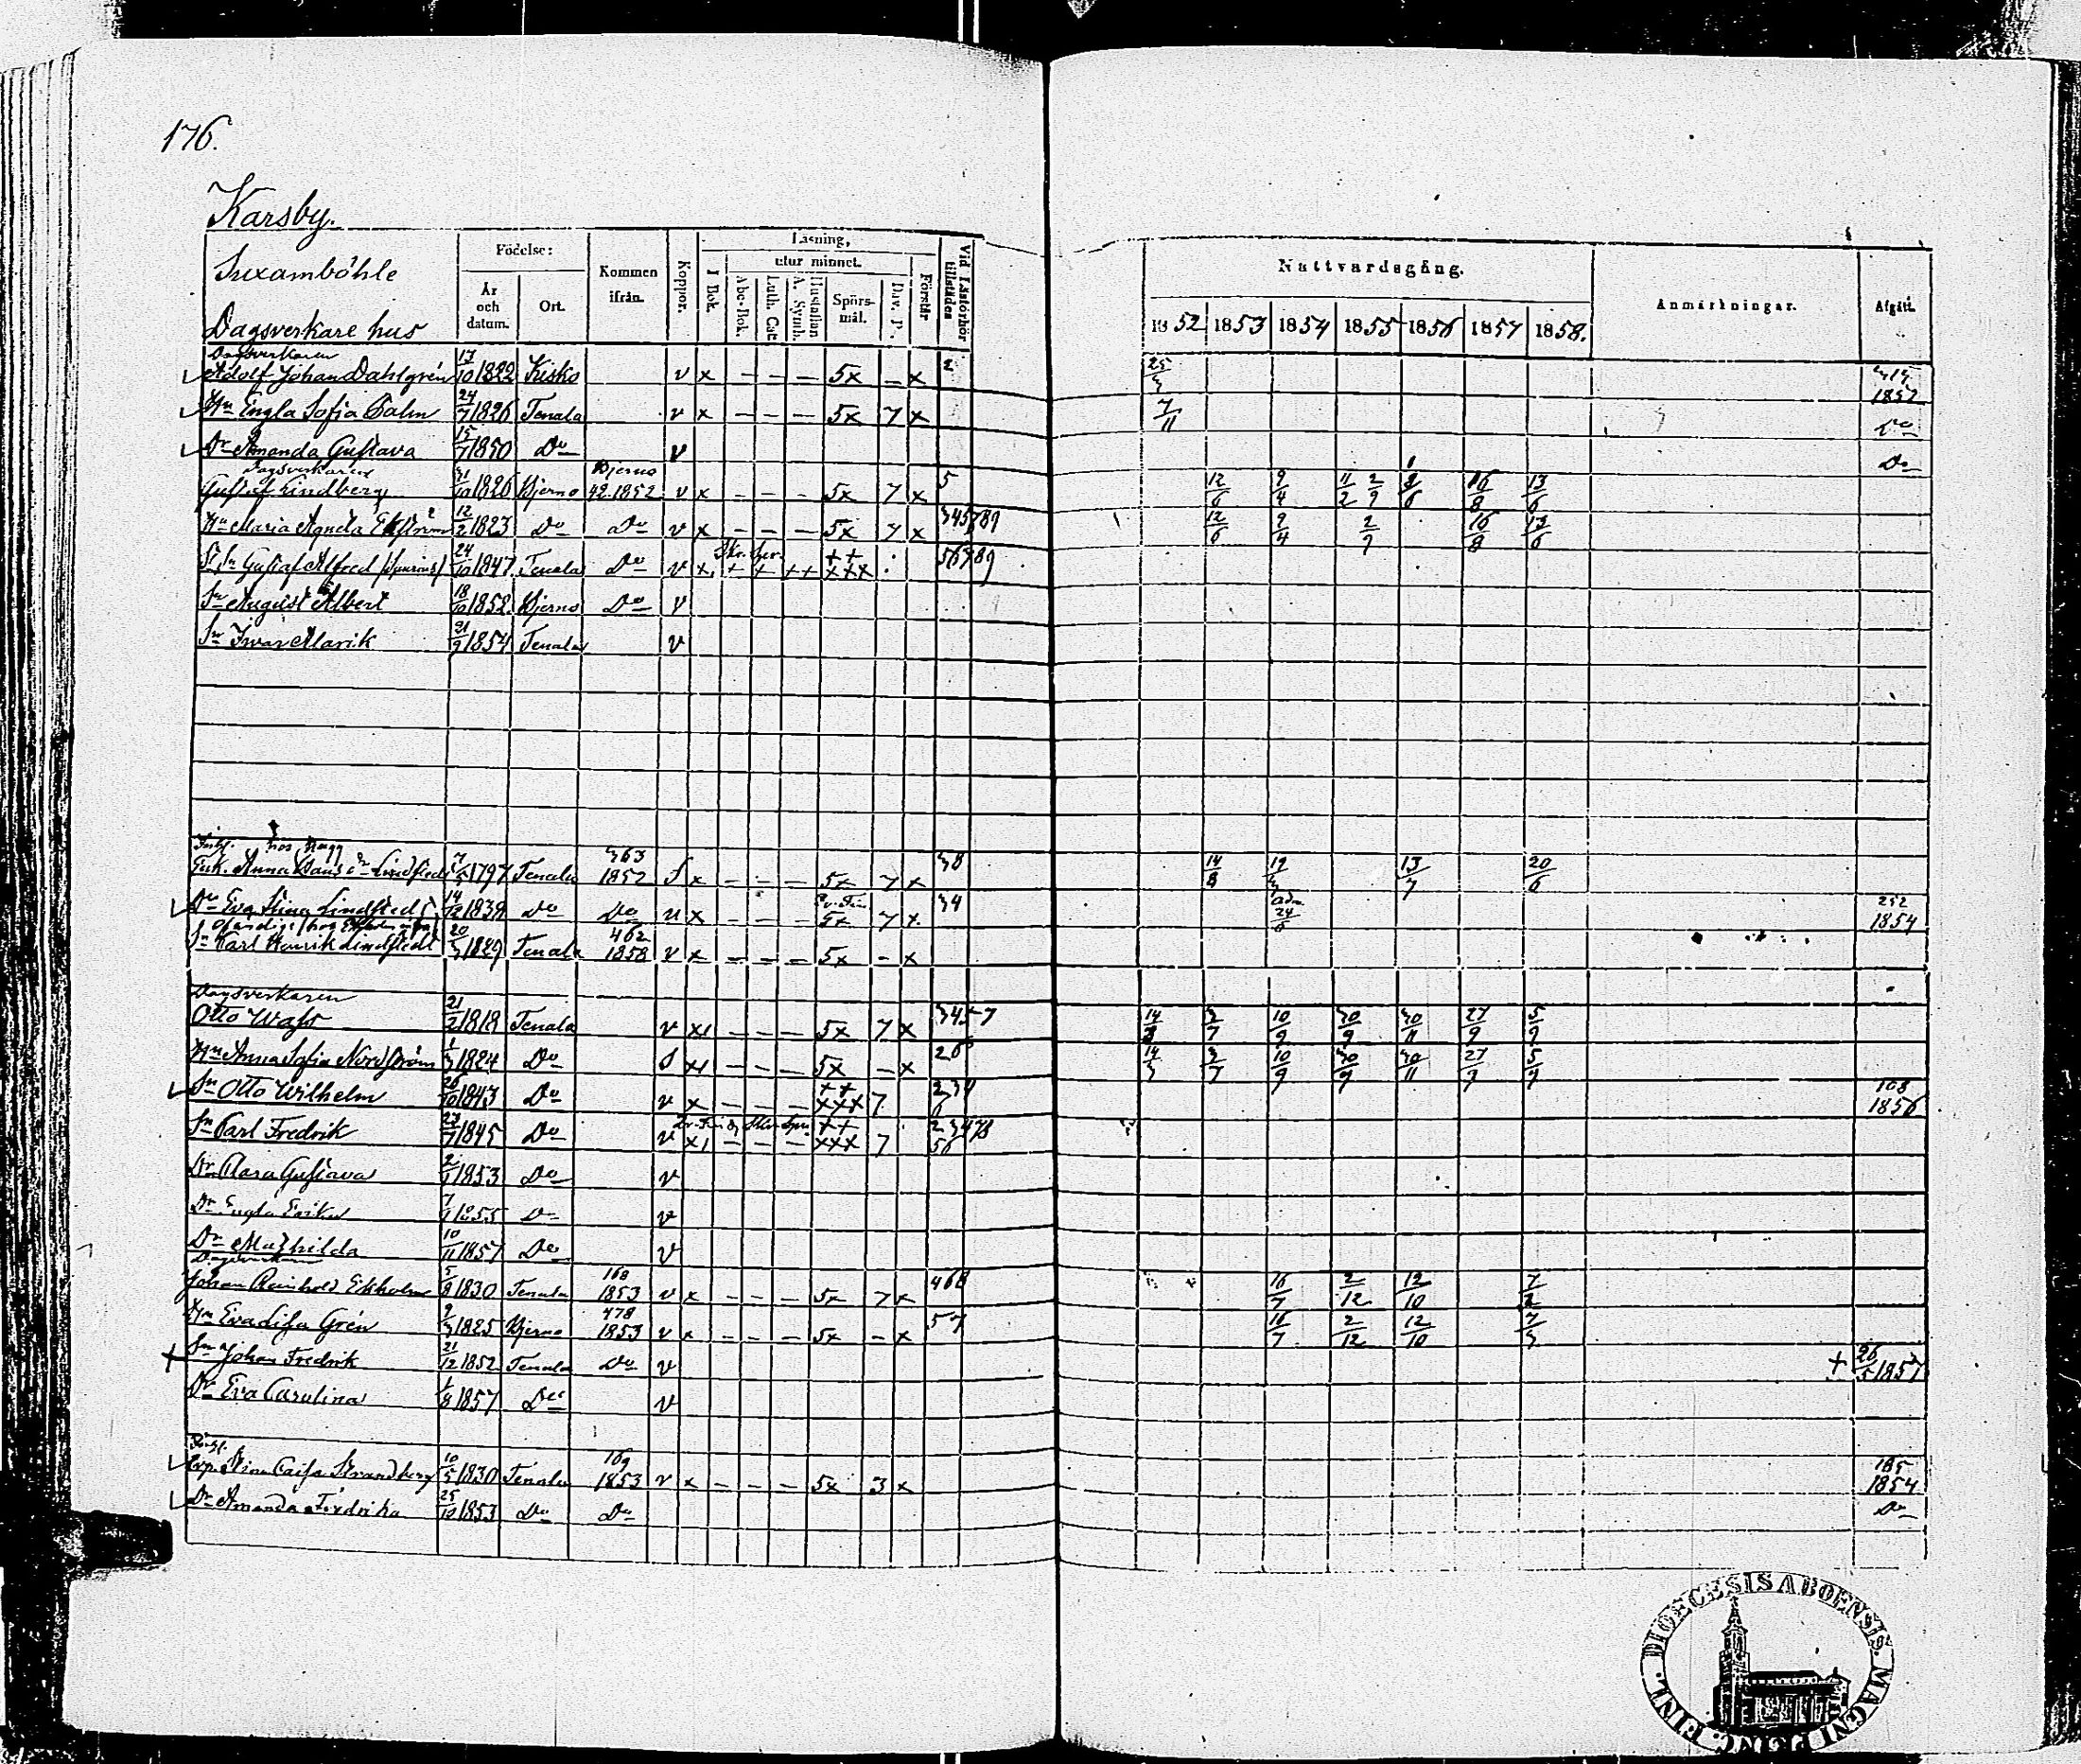 176.
Karsby.
Födelse: Kommen ifrån. Koppor. Läsning, utur minnet. Vid Läsförhör tillstädes
Nattvardsgång. Anmärkningar. Afgått.
År och datum. Ort. I Bok. Abc-Bok. Luth. Cat A. Symb. Hustaflan Spörs-mål. Dav. P. Förstår
Dagsverkare hus
1852 1853 1854 1855 1856 1857 1858.
Dagsverkaren
Adolf Johan Dahlgrén 17/10 1822 Kisko v x – – – 5x – x 2 1852
Hu Engla Sofia 24/7 1826 Tenala v x – – – 5x 7 x 7/11 Do
Dr Amanda Gustava 15/7 1850 Do v Do
Dagsverkaren Bjerno
Gustaf Lindberg 31/10 1826 Bjerno 42. 1852 v x – – – 5x 7 x 5 12/6 9/4 11/2 2/9 16/8 13/6
Hu Maria Agneta Ekström 12/2 1823 Do Do v x – – – 5x 7 x 345789 12/6 9/4 2/9 16/8 13/6
Gustaf Alfred 24/10 1847 Tenala Do v x 56789
Sn August Albert 18/10 1852 Bjerno Do v
Sn Ivar Alarik 21/9 1854 Tenala v
hos Hagg 363
Enk. Anna 1797 Tenala 1852 S x – – – 5x 7 x 38 14/8 13/7 20/6
Dr Eva Stina Lindstedt 14/12 1838 Do Do u x 5x 7 x 34 Adm 24/6 252 1854
Sn Karl Henrik Lindstedt 20/3 1829 Tenala 462 1858 v x – – – 5x – x
Dagsverkaren
Otto Wass 21/2 1818 Tenala v x – – – 5x 7 x 3457 3/7 10/9 30/9 30/11 27/9 5/9
Hu Anna Sofia Nordström 1/3 1824 Do S x – – – 5x – x 26 14/3 3/7 10/9 30/9 30/11 27/9 5/9
Sn Otto Wilhelm 26/10 1843 Do v x – – – xxx 7 234 6 108 1856
Sn Carl Fredrik 27/7 1845 Do v x – – – xxx 7 23478 56
Dr Clara Gustava 2/1 1853 Do v
Dr Engla Erika 1855 Do v
Dr Mathilda 10/11 1857 Do v
Johan Reinhold Ekholm 5/8 1830 Tenala 168 1853 v x – – – 5x 7 x 468 16/7 2/12 12/10
Hu Eva Lisa Grén 9/3 1825 Bjerno 478 1853 v x – – – 5x – x 57 16/7 2/12 12/10 7/3
Sn Johan Fredrik 21/12 1852 Tenala Do v + 26/5 1857
Dr Eva Carolina 1/8 1857 Do v
Stina Caisa Strandberg 10/5 1830 Tenala 169 1853 v x – – – 5x 3 x 185 1854
Dr Amanda Fredrika 25/10 1853 Do Do Do
DIOECESIS ABOENSIS. MAGNI PRINC. FINL.